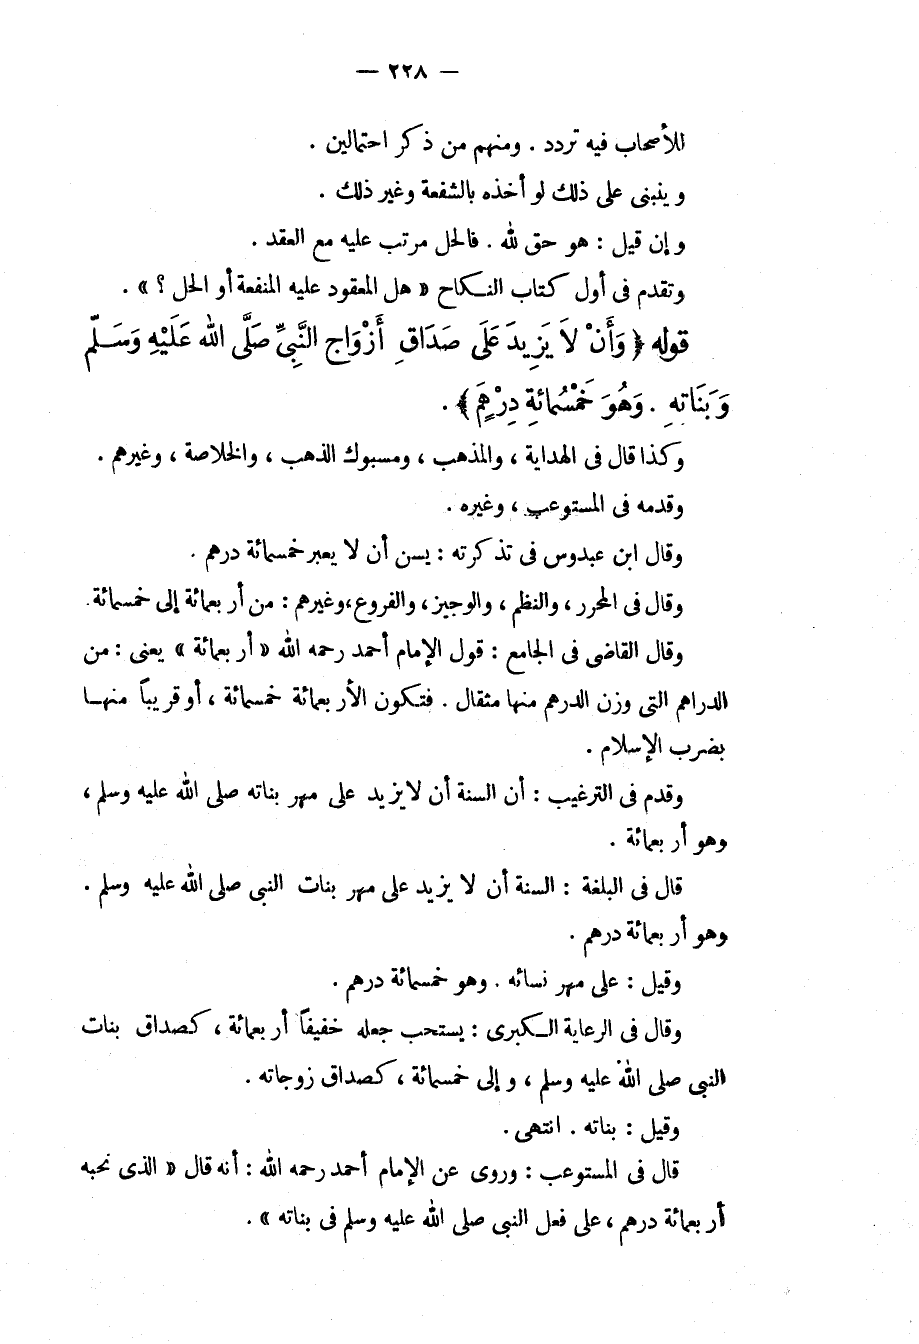 — ٢٢٨ —
للأصحاب فيه تردد . ومنهم من ذكر احتمالين .
وينبنى على ذلك لو أخذه بالشفعة وغير ذلك .
وإن قيل : هو حق لله . فالحل مرتب عليه مع العقد .
وتقدم فى أول كتاب النكاح « هل المعقود عليه المنفعة أو الحل ؟ » .
قوله ﴿ وَأَنْ لاَ يَزِيدَ عَلَى صَدَاقِ أَزْوَاجِ النَّبِيِّ صَلَّى اللهُ عَلَيْهِ وَسَلَّمَ
وَبَنَاتِهِ . وَهُوَ خَمْسُمِائَةِ دِرْهَمٍ ﴾ .
وكذا قال فى الهداية ، والمذهب ، ومسبوك الذهب ، والخلاصة ، وغيرهم .
وقدمه فى المستوعب ، وغيره .
وقال ابن عبدوس فى تذكرته : يسن أن لا يعبر خمسمائة درهم .
وقال فى المحرر ، والنظم ، والوجيز ، والفروع ، وغيرهم : من أربعمائة إلى خمسمائة .
وقال القاضى فى الجامع : قول الإمام أحمد رحمه الله « أربعمائة » يعنى : من
الدراهم التى وزن الدرهم منها مثقال . فتكون الأربعمائة خمسمائة ، أو قريباً منها
بضرب الإسلام .
وقدم فى الترغيب : أن السنة أن لا يزيد على مهر بناته صلى الله عليه وسلم ،
وهو أربعمائة .
قال فى البلغة : السنة أن لا يزيد على مهر بنات النبى صلى الله عليه وسلم .
وهو أربعمائة درهم .
وقيل : على مهر نسائه . وهو خمسمائة درهم .
وقال فى الرعاية الكبرى : يستحب جعله خفيفاً أربعمائة ، كصداق بنات
النبى صلى الله عليه وسلم ، وإلى خمسمائة ، كصداق زوجاته .
وقيل : بناته . انتهى .
قال فى المستوعب : وروى عن الإمام أحمد رحمه الله : أنه قال « الذى نحبه
أربعمائة درهم ، على فعل النبى صلى الله عليه وسلم فى بناته » .